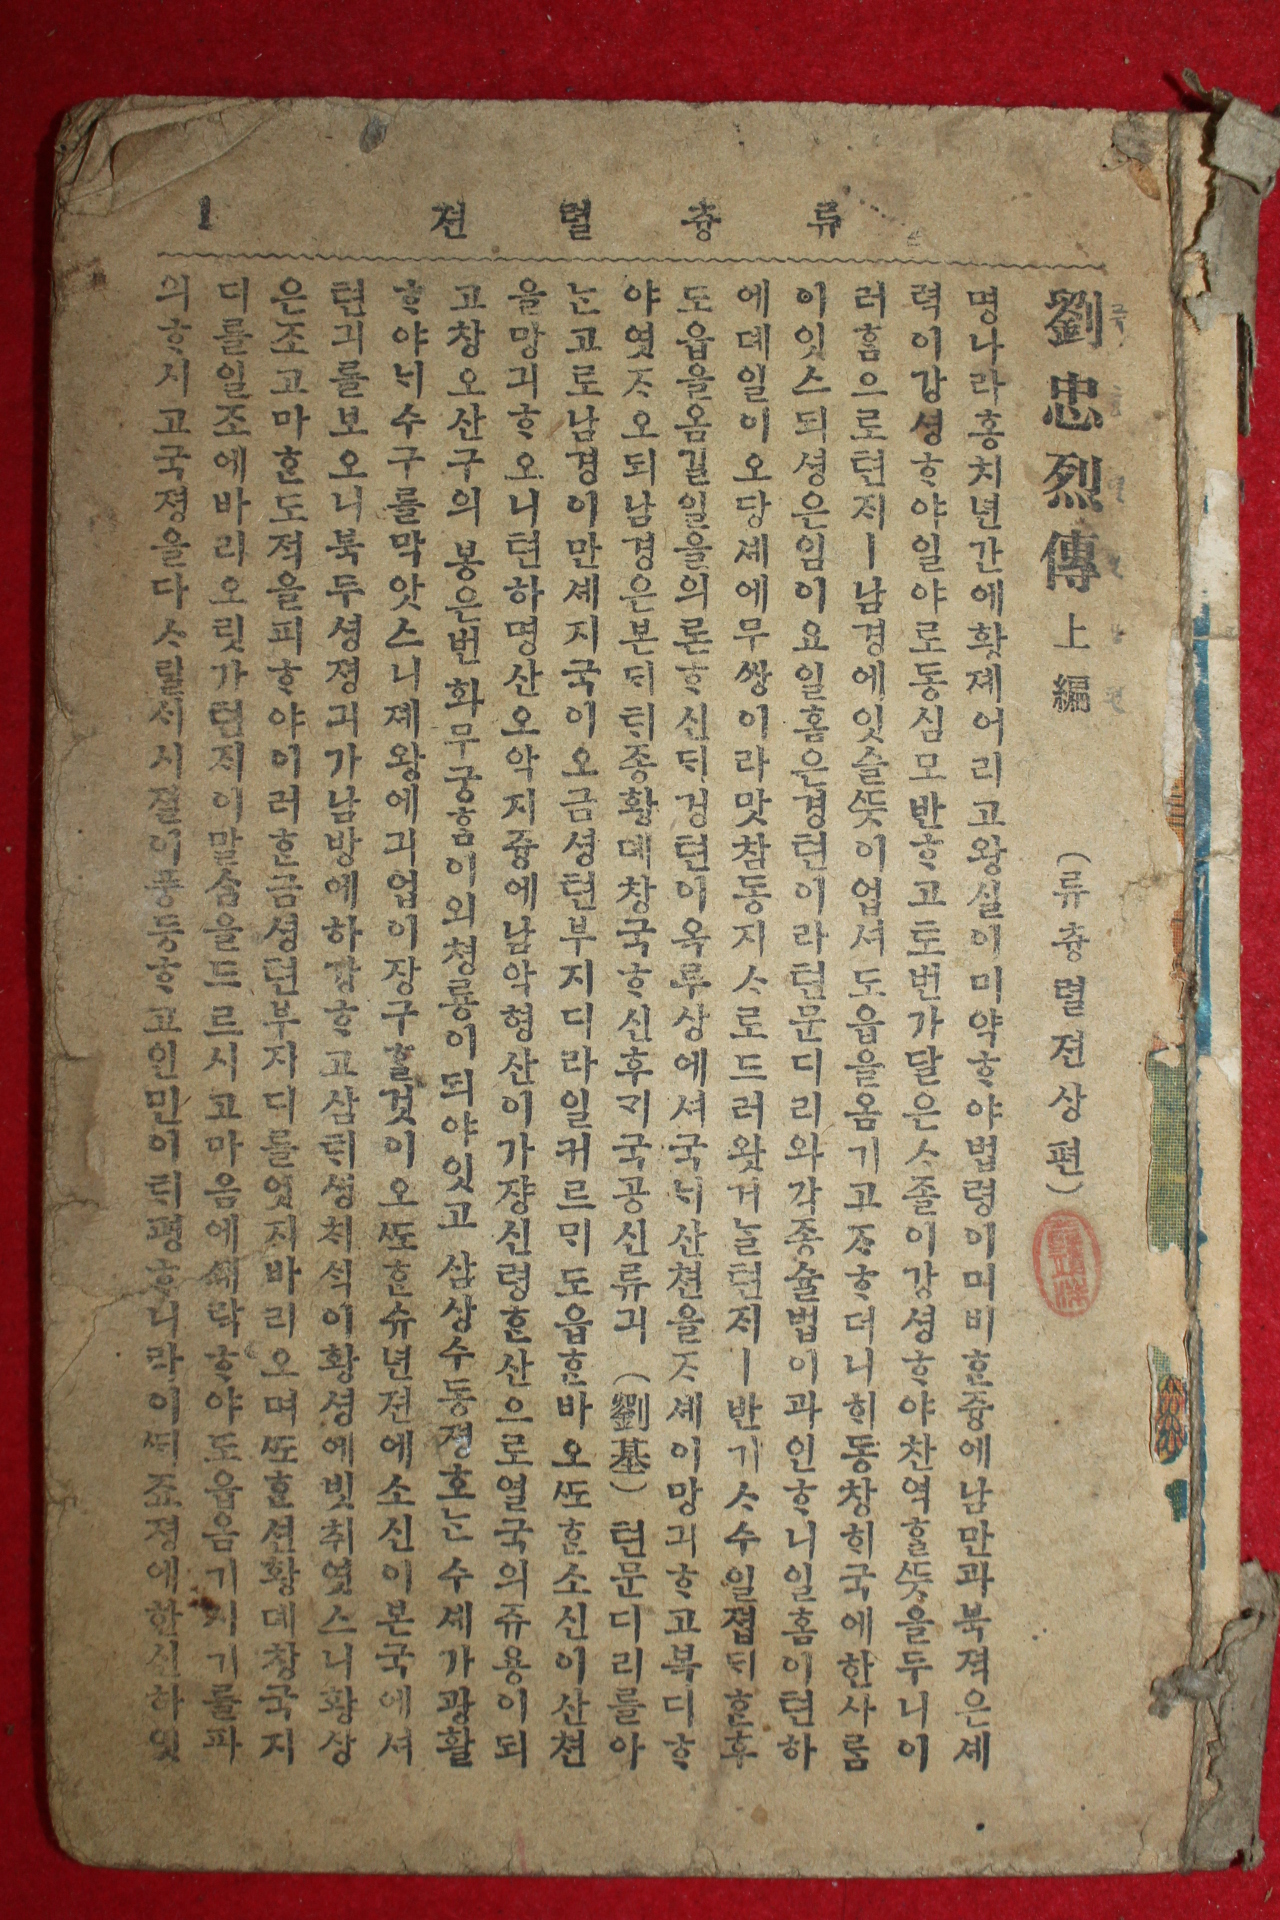 류츙렬젼 1
劉忠烈傳 上編 (류츙렬젼상편)
명나라홍치년간에황졔어리고왕실이미약ᄒᆞ야법령이미비ᄒᆞᆫ즁에남만과북젹은셰
력이강셩ᄒᆞ야일야로동심모반ᄒᆞ고토번가달은ᄉᆞ졸이강셩ᄒᆞ야찬역ᄒᆞᆯᄯᅳᆺ을두니이
러홈으로텬ᄌᆡㅣ남경에잇슬ᄯᅳᆺ이업셔도읍을옴기고ᄌᆞᄒᆞ더니ᄒᆡ동창ᄒᆡ국에한사ᄅᆞᆷ
이잇스되셩은임이요일홈은경텬이라텬문디리와각죵슐법이과인ᄒᆞ니일홈이텬하
에뎨일이오당셰에무쌍이라맛참동지ᄉᆞ로드러왓거ᄂᆞᆯ텬ᄌᆡㅣ반기ᄉᆞ수일졉ᄃᆡᄒᆞᆫ후
도읍을옴길일을의론ᄒᆞ신ᄃᆡ경텬이옥루상에셔국ᄂᆡ산쳔을ᄌᆞ셰이망긔ᄒᆞ고복디ᄒᆞ
야엿ᄌᆞ오되남경은본ᄃᆡᄐᆡ종황뎨창국ᄒᆞ신후ᄀᆡ국공신류긔(劉基)텬문디리를아
ᄂᆞᆫ고로남경이만셰지국이오금셩텬부지디라일커르ᄆᆡ도읍ᄒᆞᆫ바오ᄯᅩᄒᆞᆫ소신이산쳔
을망긔ᄒᆞ오니텬하명산오악지즁에남악형산이가쟝신령ᄒᆞᆫ산으로열국의쥬용이되
고창오산구의봉은번화무궁ᄒᆞᆷ이외쳥룡이되야잇고삼상수동졍호ᄂᆞᆫ수셰가광활
ᄒᆞ야ᄂᆡ수구를막앗스니졔왕에긔업이장구ᄒᆞᆯ것이오ᄯᅩᄒᆞᆫ슈년젼에소신이본국에셔
텬긔를보오니북두셩졍긔가남방에하강ᄒᆞ고삼ᄐᆡ셩ᄎᆡᄉᆡᆨ이황셩에빗취엿스니황상
은조고마ᄒᆞᆫ도적을피ᄒᆞ야이러ᄒᆞᆫ금셩텬부지디를엇지바리오며ᄯᅩᄒᆞᆫ션황뎨창국지
디를일조에바리오릿가텬ᄌᆡ이말ᄉᆞᆷ을드르시고마음에쇄락ᄒᆞ야도읍옴기시기를파
의ᄒᆞ시고국졍을다ᄉᆞ릴ᄉᆡ시졀이풍등ᄒᆞ고인민이ᄐᆡ평ᄒᆞ니라이ᄯᆡ죠졍에한신하잇